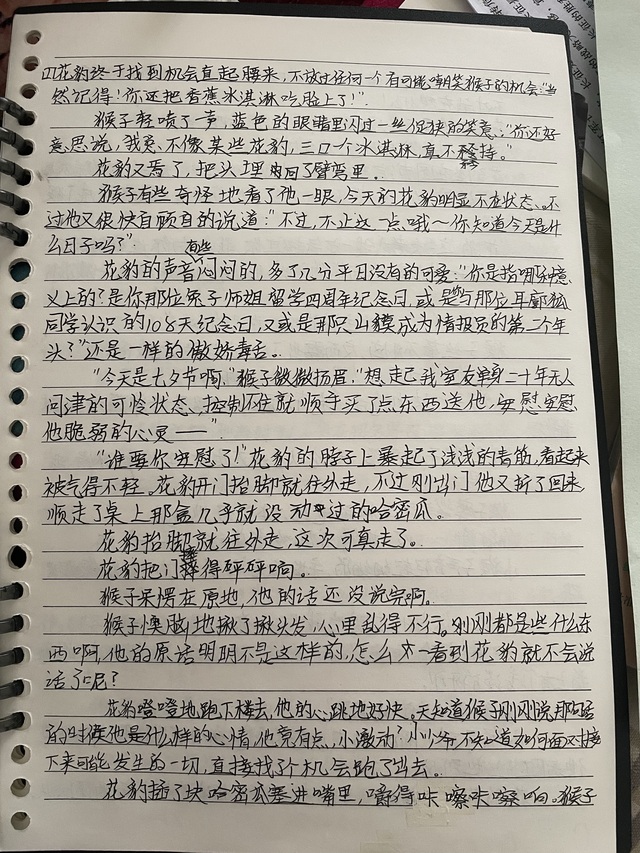 叮花豹终于找到机会直起腰来，不放过任何一个有可能嘲笑猴子的机会：“当
然记得！你还把香蕉冰淇淋吃脸上了！”
猴子轻啧了一声，蓝色的眼睛里闪过一丝促狭的笑意：“你还好
意思说，我衰、不像某些花豹，三口一个冰淇淋，真不矜持。”
花豹又蔫了，把头埋回了臂弯里。
猴子有些奇怪地看了他一眼，今天的花豹明显不在状态。不
过他又很快自顾自的说道：“不过，不止这一点哦～你知道今天是什
么日子吗？”
花豹的声音有些闷闷的，多了几分平日没有的可爱：“你是指哪种意
义上的？是你那位兔子师姐留学四周年纪念日，或是与那位耳廓狐
同学认识的108天纪念日，又或是那只山獏成为情报员的第二个年
头？”还是一样的傲娇毒舌。
“今天是七夕节啊，”猴子微微扬眉，“想起我室友单身二十年无人
问津的可怜状态，控制不住就顺手买了点东西送他，安慰安慰
他脆弱的心灵——”
“谁要你安慰了！”花豹的脖子上暴起了浅浅的青筋，看起来
被气得不轻。花豹开门抬脚就往外走，不过刚出门他又折了回来，
顺走了桌上那盒几乎就没动过的哈密瓜。
花豹抬脚就往外走，这次可真走了。
花豹把门摔得砰砰响。
猴子呆愣在原地，他的话还没说完啊。
猴子懊恼地揪了揪头发，心里乱得不行。刚刚都是些什么东
西啊，他的原话明明不是这样的，怎么一看到花豹就不会说
话了呢？
花豹噔噔地跑下楼去，他的心跳地好快。天知道猴子刚刚说那句话
的时候他是什么样的心情，他竟有点，小激动？小少爷不知道如何面对接
下来可能发生的一切，直接找了个机会跑了出去。
花豹插了块哈密瓜塞进嘴里，嚼得咔嚓咔嚓响。猴子